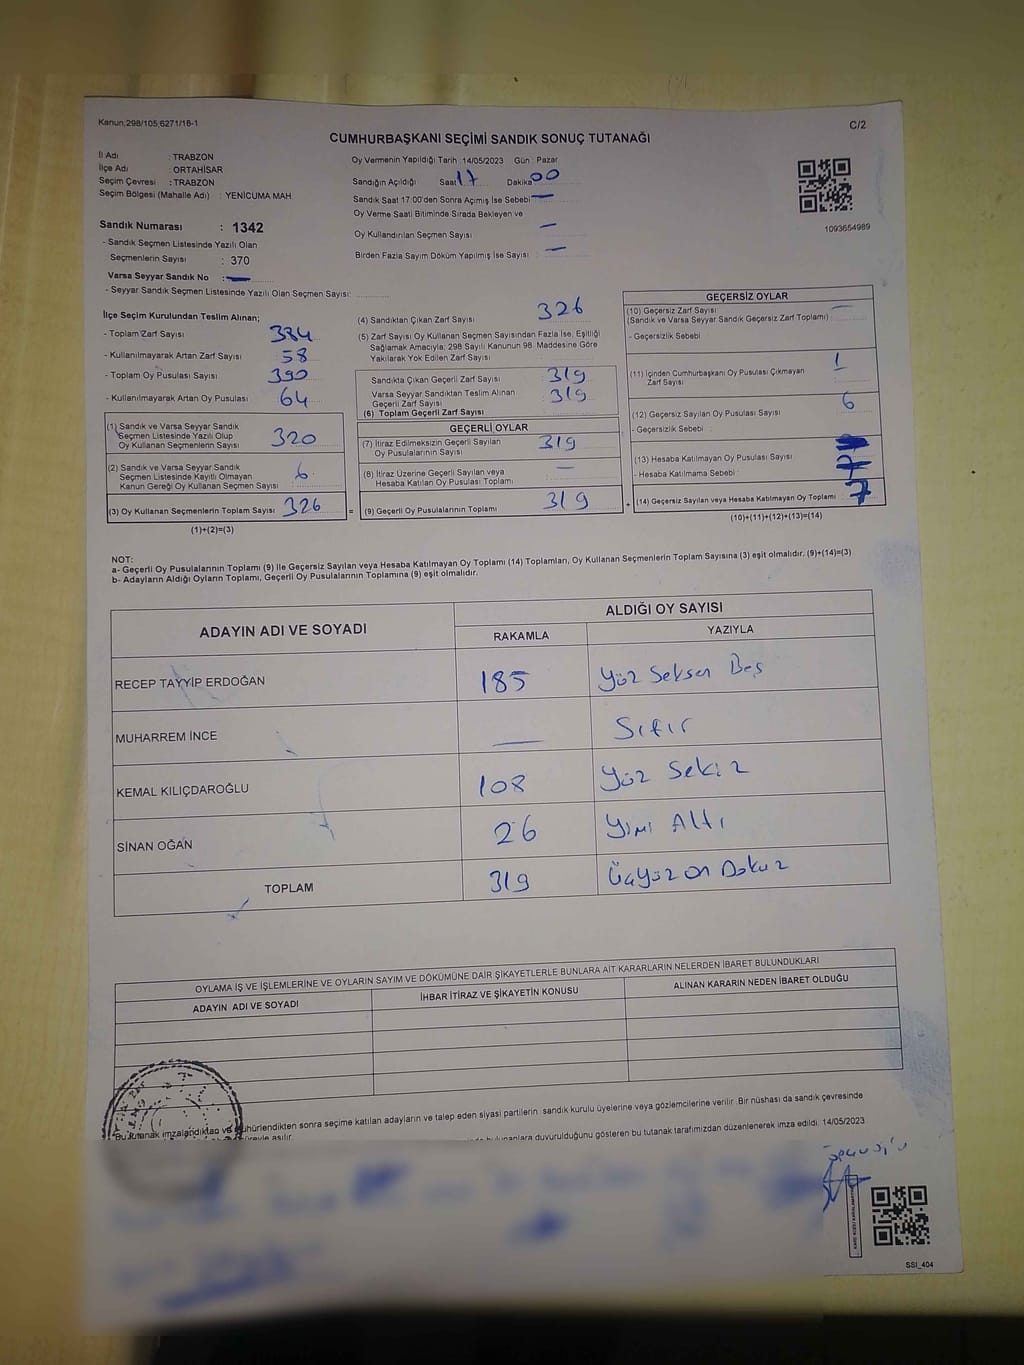 Kanun;298/105;6271/18-1
C/2
CUMHURBAŞKANI SEÇİMİ SANDIK SONUÇ TUTANAĞI
İl Adı : TRABZON
İlçe Adı : ORTAHİSAR
Seçim Çevresi : TRABZON
Seçim Bölgesi (Mahalle Adı) : YENİCUMA MAH
Oy Vermenin Yapıldığı Tarih : 14/05/2023 Gün : Pazar
Sandığın Açıldığı Saat 17 Dakika 00
Sandık Saat 17:00'den Sonra Açımış İse Sebebi —
Oy Verme Saati Bitiminde Sırada Bekleyen ve
Oy Kullandırılan Seçmen Sayısı —
Birden Fazla Sayım Döküm Yapılmış İse Sayısı —
1093654989
Sandık Numarası : 1342
- Sandık Seçmen Listesinde Yazılı Olan
Seçmenlerin Sayısı : 370
Varsa Seyyar Sandık No : —
- Seyyar Sandık Seçmen Listesinde Yazılı Olan Seçmen Sayısı:
İlçe Seçim Kurulundan Teslim Alınan;
- Toplam Zarf Sayısı 384
- Kullanılmayarak Artan Zarf Sayısı 58
- Toplam Oy Pusulası Sayısı 390
- Kullanılmayarak Artan Oy Pusulası 64
(1) Sandık ve Varsa Seyyar Sandık
Seçmen Listesinde Yazılı Olup
Oy Kullanan Seçmenlerin Sayısı 320
(2) Sandık ve Varsa Seyyar Sandık
Seçmen Listesinde Kayıtlı Olmayan
Kanun Gereği Oy Kullanan Seçmen Sayısı 6
(3) Oy Kullanan Seçmenlerin Toplam Sayısı 326 =
(1)+(2)=(3)
(4) Sandıktan Çıkan Zarf Sayısı 326
(5) Zarf Sayısı Oy Kullanan Seçmen Sayısından Fazla İse, Eşitliği
Sağlamak Amacıyla; 298 Sayılı Kanunun 98. Maddesine Göre
Yakılarak Yok Edilen Zarf Sayısı
Sandıkta Çıkan Geçerli Zarf Sayısı 319
Varsa Seyyar Sandıktan Teslim Alınan
Geçerli Zarf Sayısı 319
(6) Toplam Geçerli Zarf Sayısı
GEÇERLİ OYLAR
(7) İtiraz Edilmeksizin Geçerli Sayılan
Oy Pusulalarının Sayısı 319
(8) İtiraz Üzerine Geçerli Sayılan veya
Hesaba Katılan Oy Pusulası Toplamı —
(9) Geçerli Oy Pusulalarının Toplamı 319 +
GEÇERSİZ OYLAR
(10) Geçersiz Zarf Sayısı —
(Sandık ve Varsa Seyyar Sandık Geçersiz Zarf Toplamı)
- Geçersizlik Sebebi
(11) İçinden Cumhurbaşkanı Oy Pusulası Çıkmayan
Zarf Sayısı 1
(12) Geçersiz Sayılan Oy Pusulası Sayısı 6
- Geçersizlik Sebebi
(13) Hesaba Katılmayan Oy Pusulası Sayısı
- Hesaba Katılmama Sebebi
(14) Geçersiz Sayılan veya Hesaba Katılmayan Oy Toplamı 7
(10)+(11)+(12)+(13)=(14)
NOT:
a- Geçerli Oy Pusulalarının Toplamı (9) ile Geçersiz Sayılan veya Hesaba Katılmayan Oy Toplamı (14) Toplamları, Oy Kullanan Seçmenlerin Toplam Sayısına (3) eşit olmalıdır. (9)+(14)=(3)
b- Adayların Aldığı Oyların Toplamı, Geçerli Oy Pusulalarının Toplamına (9) eşit olmalıdır.
ADAYIN ADI VE SOYADI
ALDIĞI OY SAYISI
RAKAMLA YAZIYLA
RECEP TAYYİP ERDOĞAN 185 Yüz Seksen Beş
MUHARREM İNCE — Sıfır
KEMAL KILIÇDAROĞLU 108 Yüz Sekiz
SİNAN OĞAN 26 Yimi Altı
TOPLAM 319 Üçyüz on Dokuz
OYLAMA İŞ VE İŞLEMLERİNE VE OYLARIN SAYIM VE DÖKÜMÜNE DAİR ŞİKAYETLERLE BUNLARA AİT KARARLARIN NELERDEN İBARET BULUNDUKLARI
ADAYIN ADI VE SOYADI İHBAR İTİRAZ VE ŞİKAYETİN KONUSU ALINAN KARARIN NEDEN İBARET OLDUĞU
Bu tutanak imzalandıktan ve mühürlendikten sonra seçime katılan adayların ve talep eden siyasi partilerin sandık kurulu üyelerine veya gözlemcilerine verilir. Bir nüshası da sandık çevresinde
süreyle asılır. bulunanlara duyurulduğunu gösteren bu tutanak tarafımızdan düzenlenerek imza edildi. 14/05/2023
SSI_404